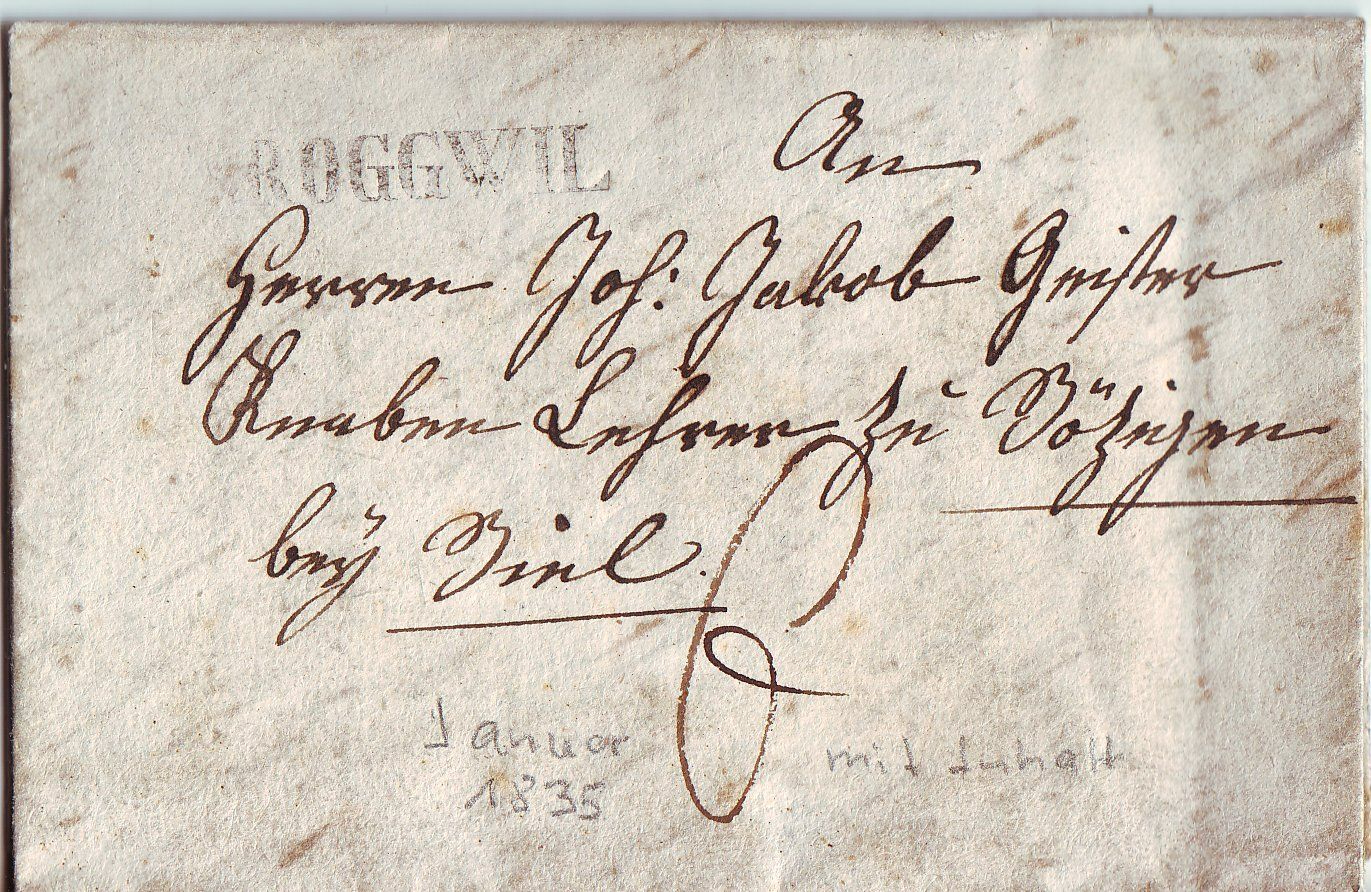 ROGGWIL
An
Herren Joh: Jakob Geister
Knaben Lehrer zu Bözigen
bey Biel.
6
Januar
1835
mit Inhalt